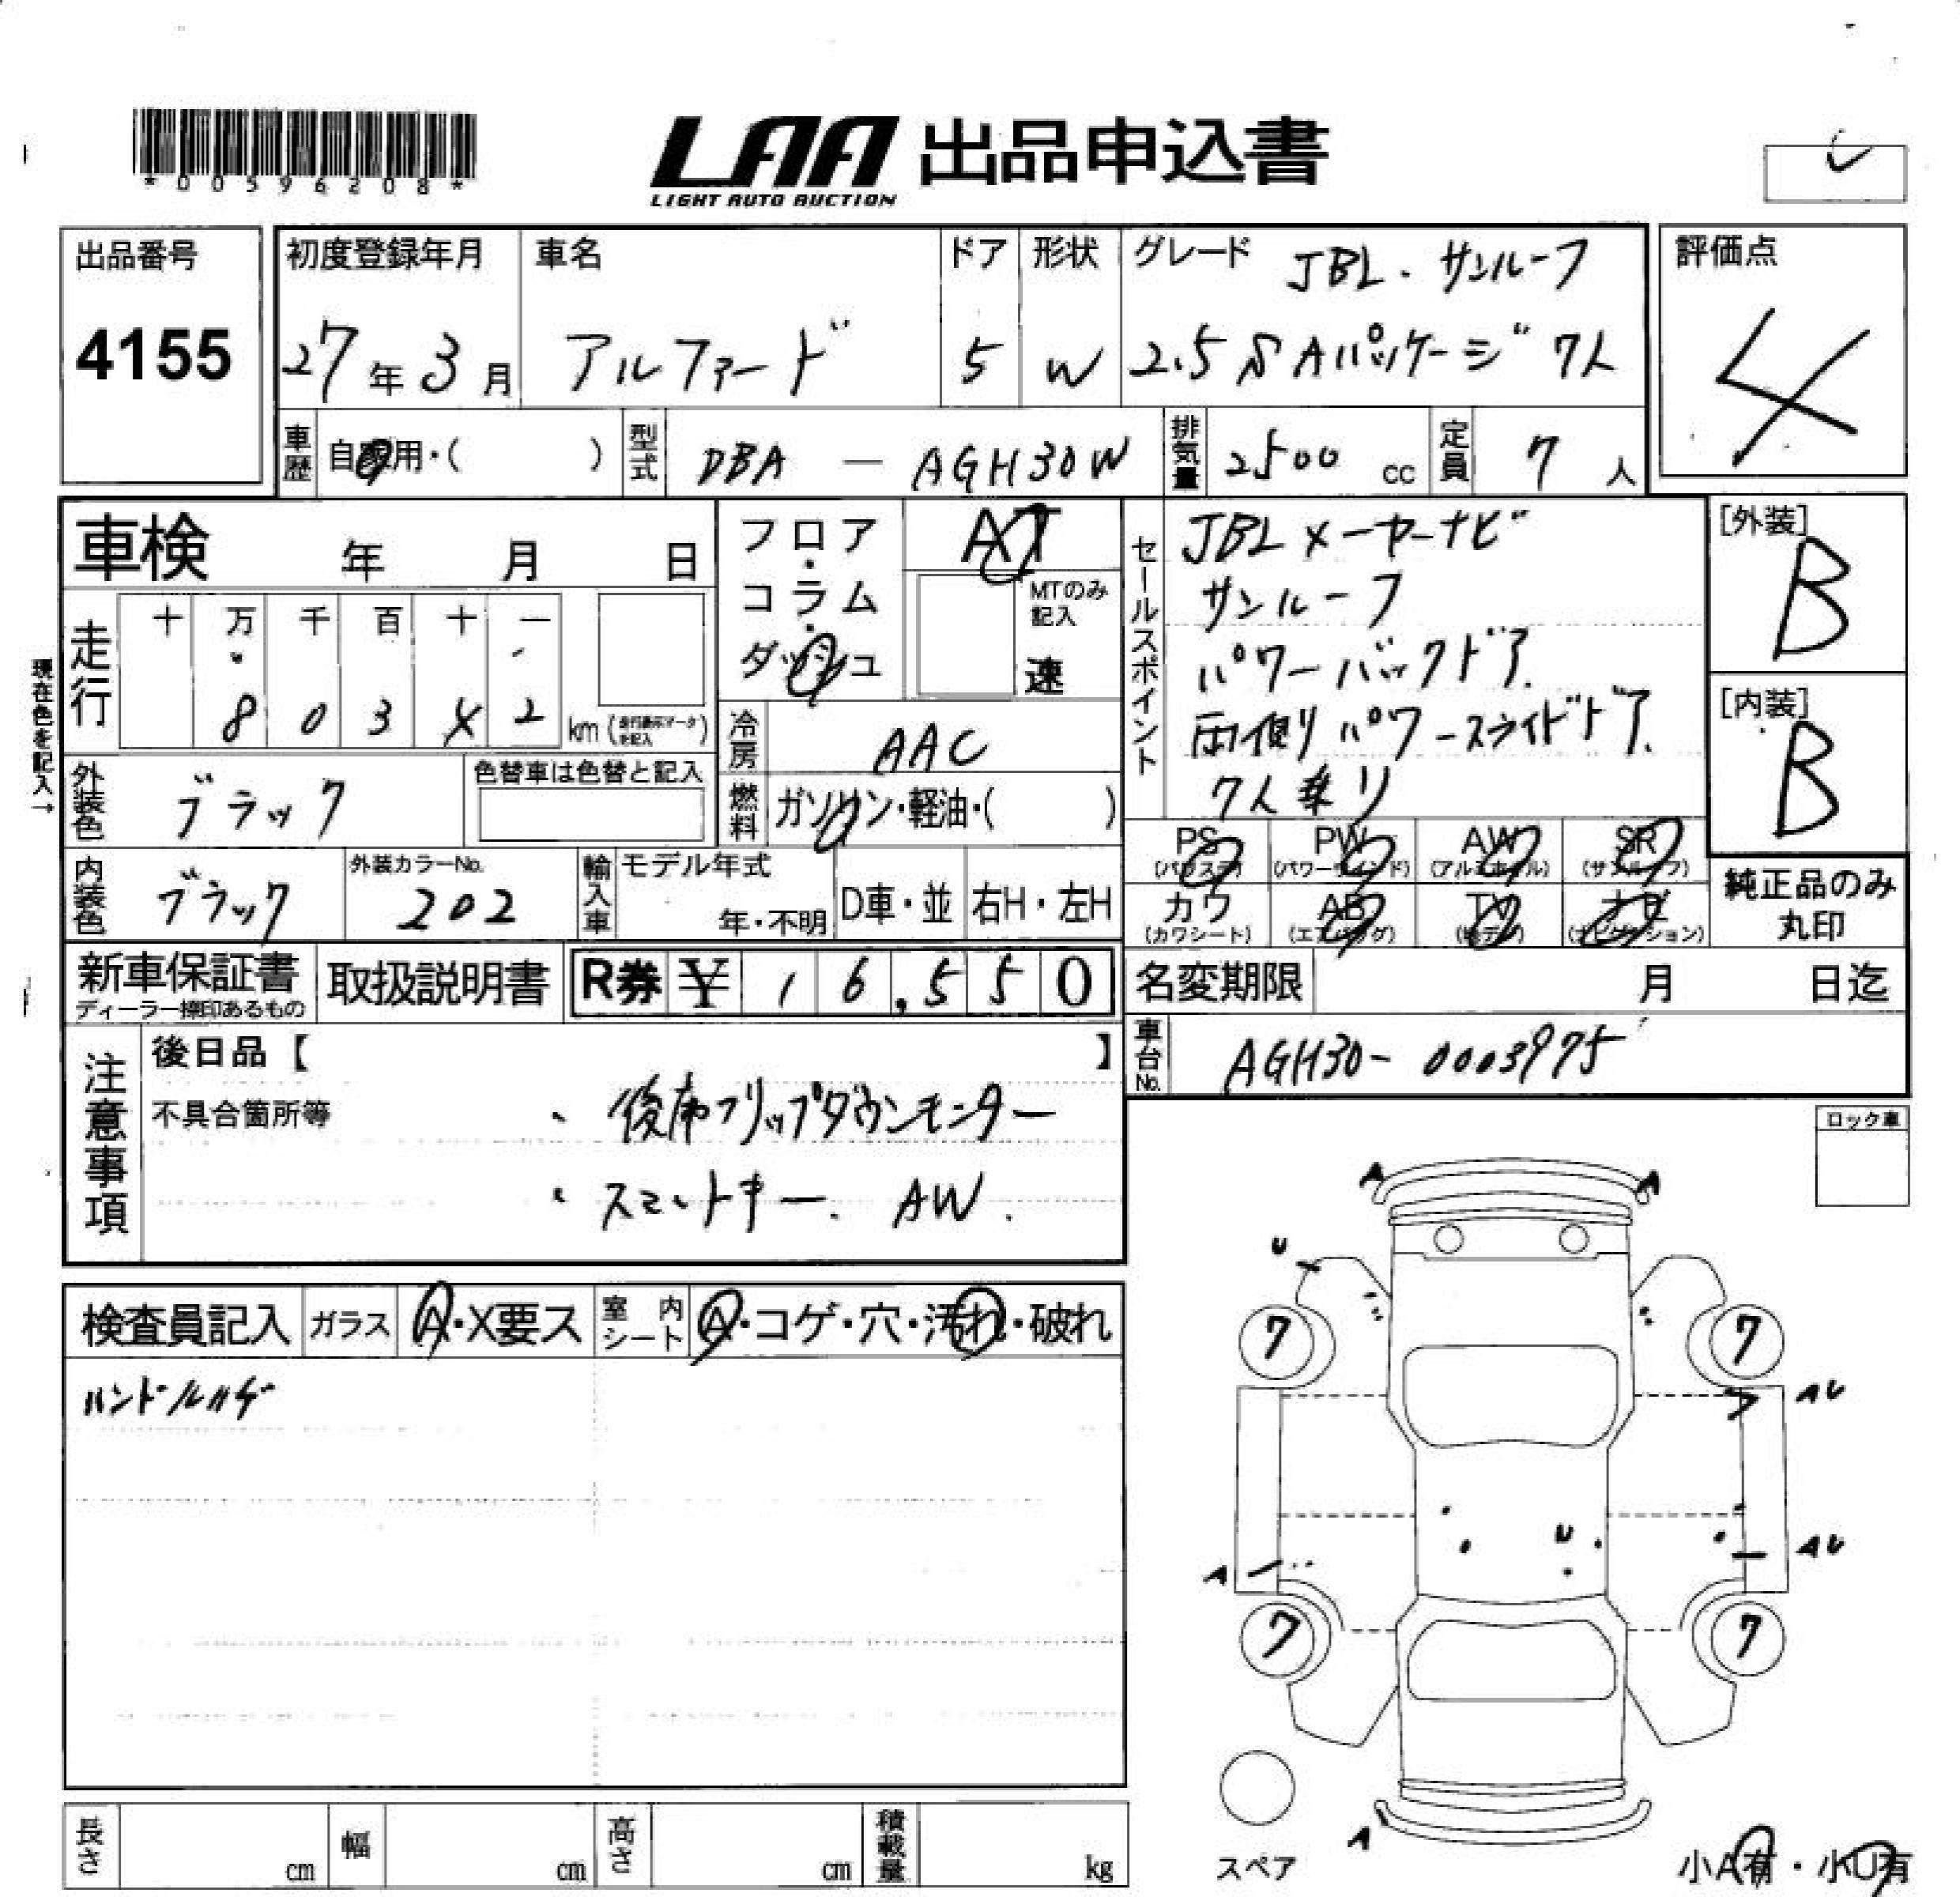 *00596208*
LAA 出品申込書
LIGHT AUTO AUCTION
出品番号
4155
初度登録年月
27年3月
車名
アルファード
ドア
5
形状
W
グレード JBL・サンルーフ
2.5 S Aパッケージ 7人
評価点
4
車歴 自家用・( )
型式 DBA — AGH30W
排気量 2500 cc
定員 7 人
車検 年 月 日
フロア・コラム・ダッシュ
AT
MTのみ記入
速
セールスポイント
JBLメーカーナビ
サンルーフ
パワーバックドア.
両側パワースライドドア.
7人乗り
[外装]
B
[内装]
B
現在色を記入→
走行
十 万 千 百 十 一
8 0 3 4 2 km (走行表示マークを記入)
冷房 AAC
外装色 ブラック
色替車は色替と記入
燃料 ガソリン・軽油・( )
内装色 ブラック
外装カラーNo.
202
輸入車 モデル年式
年・不明
D車・並
右H・左H
PS (パワステ)
PW (パワーウインド)
AW (アルミホイル)
SR (サンルーフ)
カワ (カワシート)
AB (エアバッグ)
TV (テレビ)
ナビ (ナビゲーション)
純正品のみ
丸印
新車保証書
ディーラー捺印あるもの
取扱説明書
R券 ¥ 16,550
名変期限 月 日迄
車台No. AGH30-0003975
注意事項
後日品【 】
不具合箇所等
、後席フリップダウンモニター
、スマートキー. AW.
ロック車
検査員記入
ガラス A・X要ス
室内シート A・コゲ・穴・汚れ・破れ
ハンドルハゲ
A A
U
7 7
AU
U
AU
A
7 7
A
スペア
小A有・小U有
長さ cm
幅 cm
高さ cm
積載量 kg